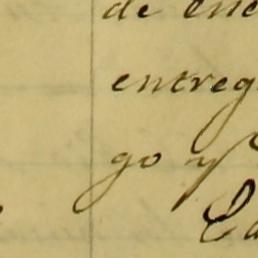 de ene
entreg
go y
Ca